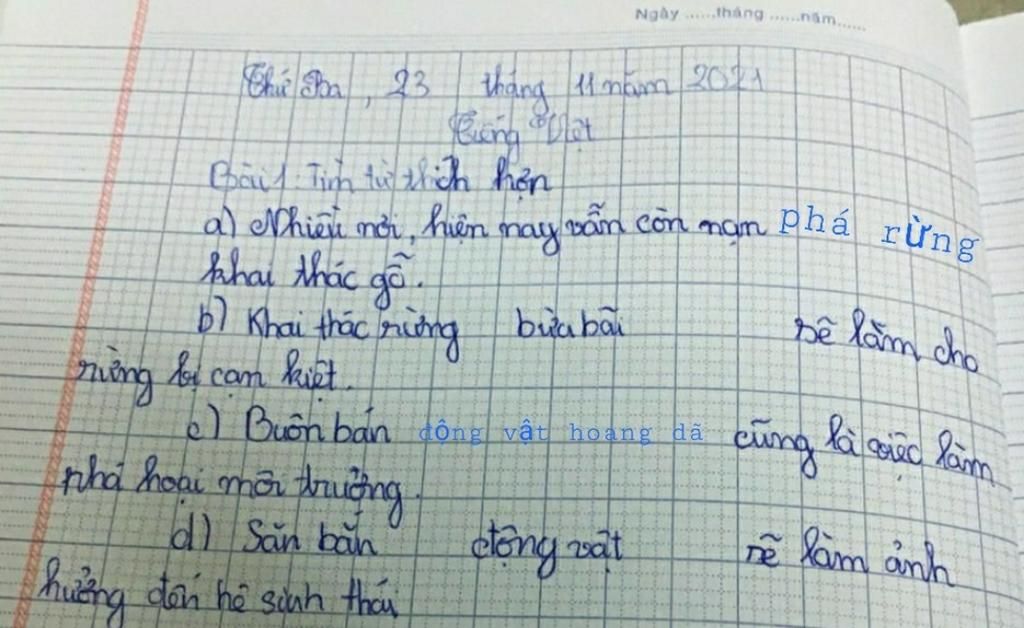 Ngày ......tháng ......năm......
Thứ Ba, 23 tháng 11 năm 2021
Tiếng Việt
Bài 1: Tìm từ thích hợp
a) Nhiều nơi, hiện nay vẫn còn nạn phá rừng
khai thác gỗ.
b) Khai thác rừng bừa bãi sẽ làm cho
rừng bị cạn kiệt.
c) Buôn bán động vật hoang dã cũng là việc làm
phá hoại môi trường.
d) Săn bắn động vật sẽ làm ảnh
hưởng đến hệ sinh thái